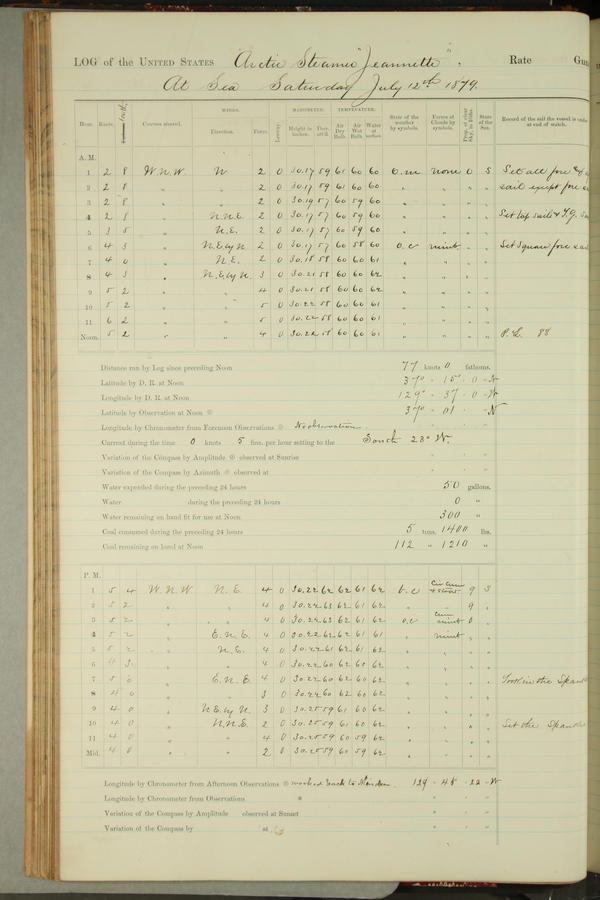 LOG of the UNITED STATES Arctic Steamer "Jeannette", Rate Gun
At Sea Saturday July 12th 1879.
Hour. Knots. Courses steered. WINDS. Direction. Force. Leeway. BAROMETER. Height in inches. Ther. att'd. TEMPERATURE. Air Dry Bulb. Air Wet Bulb. Water at surface. State of the weather by symbols. Forms of Clouds by symbols. Prop. of clear Sky, in 10ths. State of the Sea. Record of the sail the vessel is under at end of watch.
A. M.
1 2 8 W.N.W N 2 0 30.17 59 61 60 60 o.m none 0 S Set all fore & af
2 2 8 " " 2 0 30.17 59 61 60 60 " " " " sail except fore
3 2 8 " " 2 0 30.19 57 60 59 60 " " " "
4 2 8 " N.N.E. 2 0 30.17 57 60 59 60 " " " " Set top sails & T.G. Sa
5 3 5 " N.E. 2 0 30.17 57 60 59 60 " " " "
6 4 3 " N.E. by N. 2 0 30.17 57 60 58 60 o.c nimb " " Set Square fore sail
7 4 0 " N.E. 2 0 30.18 58 60 60 61 " " " "
8 4 3 " N.E. by N. 3 0 30.21 58 60 60 62 " " " "
9 5 2 " " 4 0 30.21 58 60 60 62 " " " "
10 5 2 " " 5 0 30.22 58 60 60 61 " " " "
11 6 2 " " 5 0 30.22 58 60 60 61 " " " "
Noon. 5 2 " " 4 0 30.22 58 60 60 61 " " " " P.L. 88
Distance run by Log since preceding Noon 77 knots 0 fathoms.
Latitude by D. R. at Noon 37° - 15' - 0 - N
Longitude by D. R. at Noon 129° - 37 - 0 - W
Latitude by Observation at Noon 37° - 01' - N
Longitude by Chronometer from Forenoon Observations No observation
Current during the time 0 knots 5 fms. per hour setting to the South 23° W.
Variation of the Compass by Amplitude observed at Sunrise
Variation of the Compass by Azimuth observed at
Water expended during the preceding 24 hours 50 gallons.
Water during the preceding 24 hours 0 "
Water remaining on hand fit for use at Noon 300 "
Coal consumed during the preceding 24 hours 5 tons, 1400 lbs.
Coal remaining on hand at Noon 112 " 1210 "
P. M.
1 5 4 W.N.W N.E. 4 0 30.22 62 62 61 62 b.c Cir Cum & strat. 9 S
2 5 2 " " 4 0 30.22 63 62 61 62 " " 9 "
3 5 2 " " 4 0 30.22 63 62 61 62 o.c Cum nimb 0 "
4 5 2 " E.N.E. 4 0 30.22 62 62 61 61 " nimb " "
5 5 2 " N.E. 4 0 30.22 61 62 61 62 " " " "
6 4 3 " " 4 0 30.22 60 62 60 62 " " " "
7 5 0 " E.N.E 4 0 30.22 60 62 60 62 " " " " Took in the Spank
8 4 0 " " 3 0 30.22 60 62 60 62 " " " "
9 4 0 " N.E. by N. 3 0 30.25 59 61 60 62 " " " "
10 4 0 " N.N.E. 2 0 30.25 59 61 60 62 " " " " Set the Spanke
11 4 0 " " 4 0 30.25 59 60 59 62 " " " "
Mid. 4 0 " " 2 0 30.25 59 60 59 62 " " " "
Longitude by Chronometer from Afternoon Observations worked back to Noon 129 - 48 - 22 - W
Longitude by Chronometer from Observations
Variation of the Compass by Amplitude observed at Sunset
Variation of the Compass by at